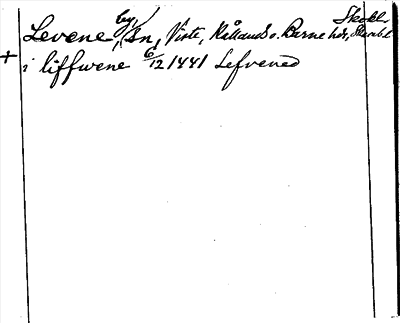 Levene, by, sn, Viste, Kållands o. Barne hdr, Skabl
+ i liffwene 6/12 1441 Lefvened